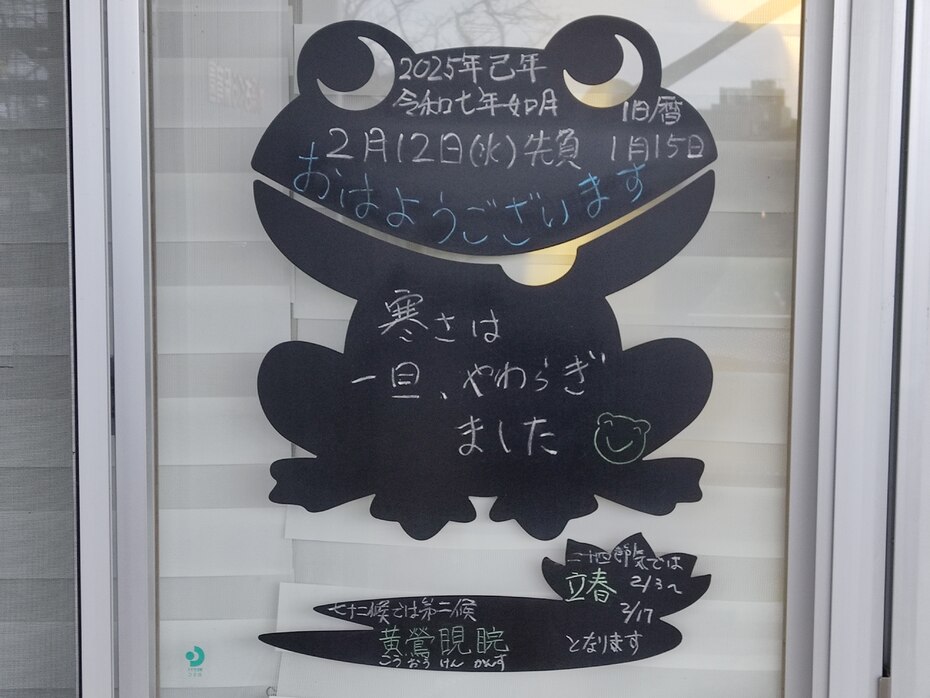 2025年己年
令和七年如月
旧暦
2月12日(水)先負 1月15日
おはようございます
寒さは
一旦、やわらぎ
ました
二十四節気では
立春 2/3〜
2/17
となります
七十二候では第二候
黄鶯睍睆
こうおうけんかんす